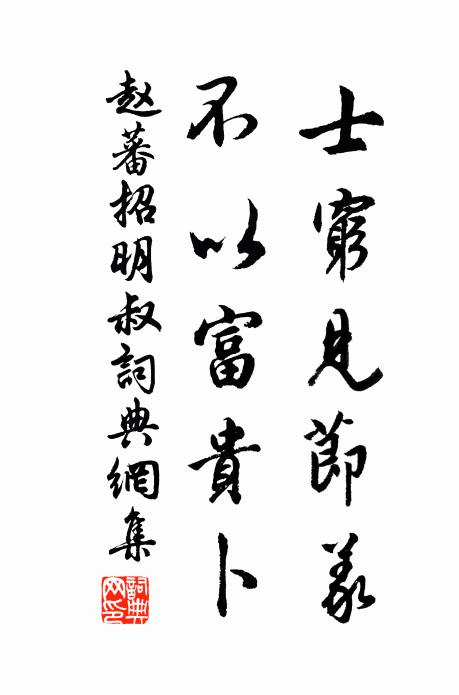 士窮見節義
不以富貴卜
赵蕃招明叔詞典網集
詞典网印